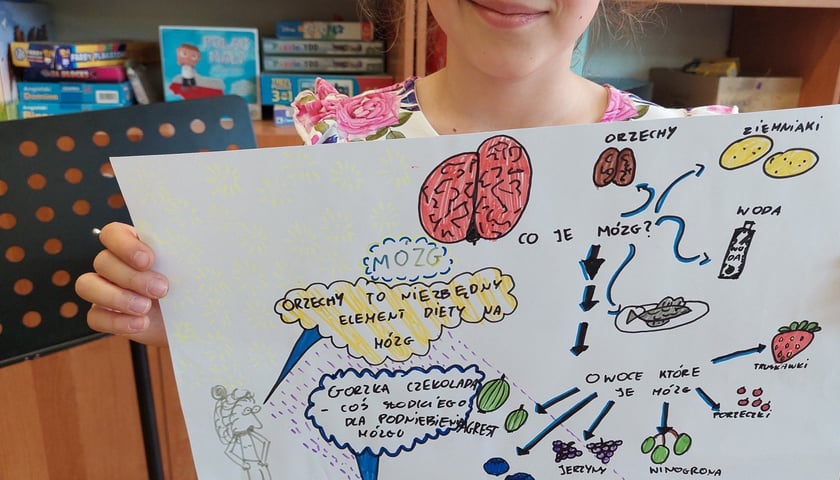 ORZECHY
ZIEMNIAKI
CO JE MÓZG?
WODA
MÓZG
ORZECHY TO NIEZBĘDNY
ELEMENT DIETY NA
MÓZG
GORZKA CZEKOLADA
- COŚ SŁODKIEGO
DLA PODNIEBIENIA
MÓZGU
OWOCE KTÓRE
JE MÓZG
TRUSKAWKI
PORZECZKI
AGREST
JERZYNY
WINOGRONA